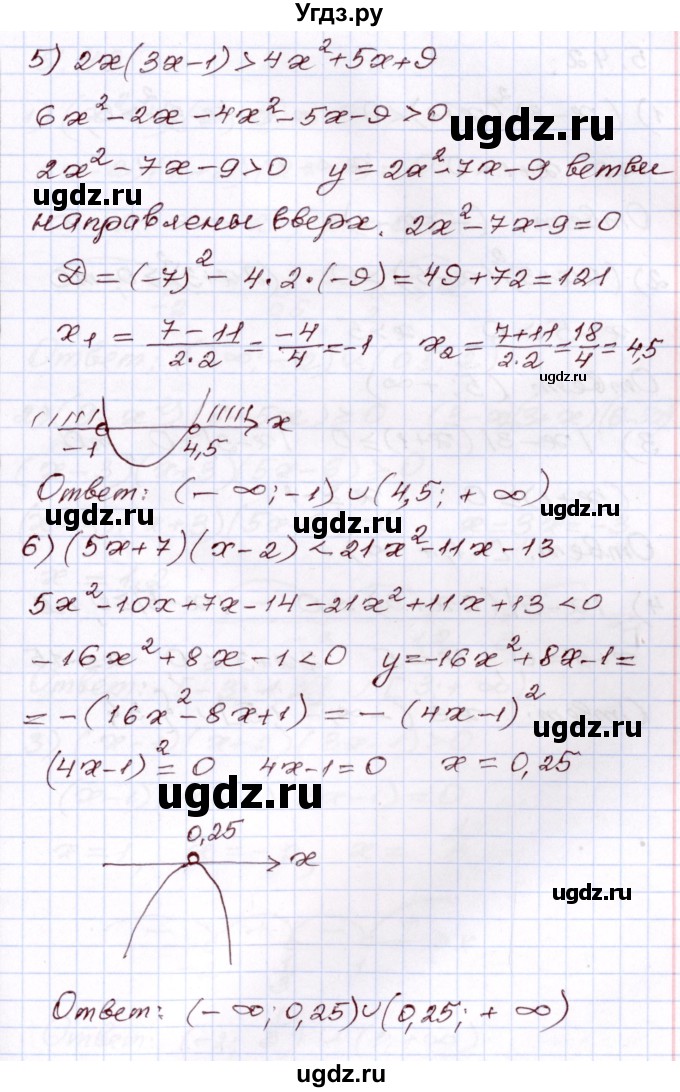 Угдз.ру
5) 2x(3x-1)>4x²+5x+9
6x²-2x-4x²-5x-9>0
ugdz.ru
2x²-7x-9>0 y=2x²-7x-9 ветви
ugdz.ru
ugdz.ru
направлены вверх. 2x²-7x-9=0
D=(-7)²-4·2·(-9)=49+72=121
x₁=(7-11)/(2·2)=(-4)/4=-1 x₂=(7+11)/(2·2)=18/4=4,5
ugdz.ru
-1 4,5 x
Ответ: (-∞;-1)∪(4,5;+∞)
ugdz.ru
ugdz.ru
6) (5x+7)(x-2)<21x²-11x-13
5x²-10x+7x-14-21x²+11x+13<0
-16x²+8x-1<0 y=-16x²+8x-1=
=-(16x²-8x+1)=-(4x-1)²
ugdz.ru
(4x-1)²=0 4x-1=0 x=0,25
ugdz.ru
0,25 x
ugdz.ru
Ответ: (-∞;0,25)∪(0,25;+∞)
ugdz.ru
ugdz.ru